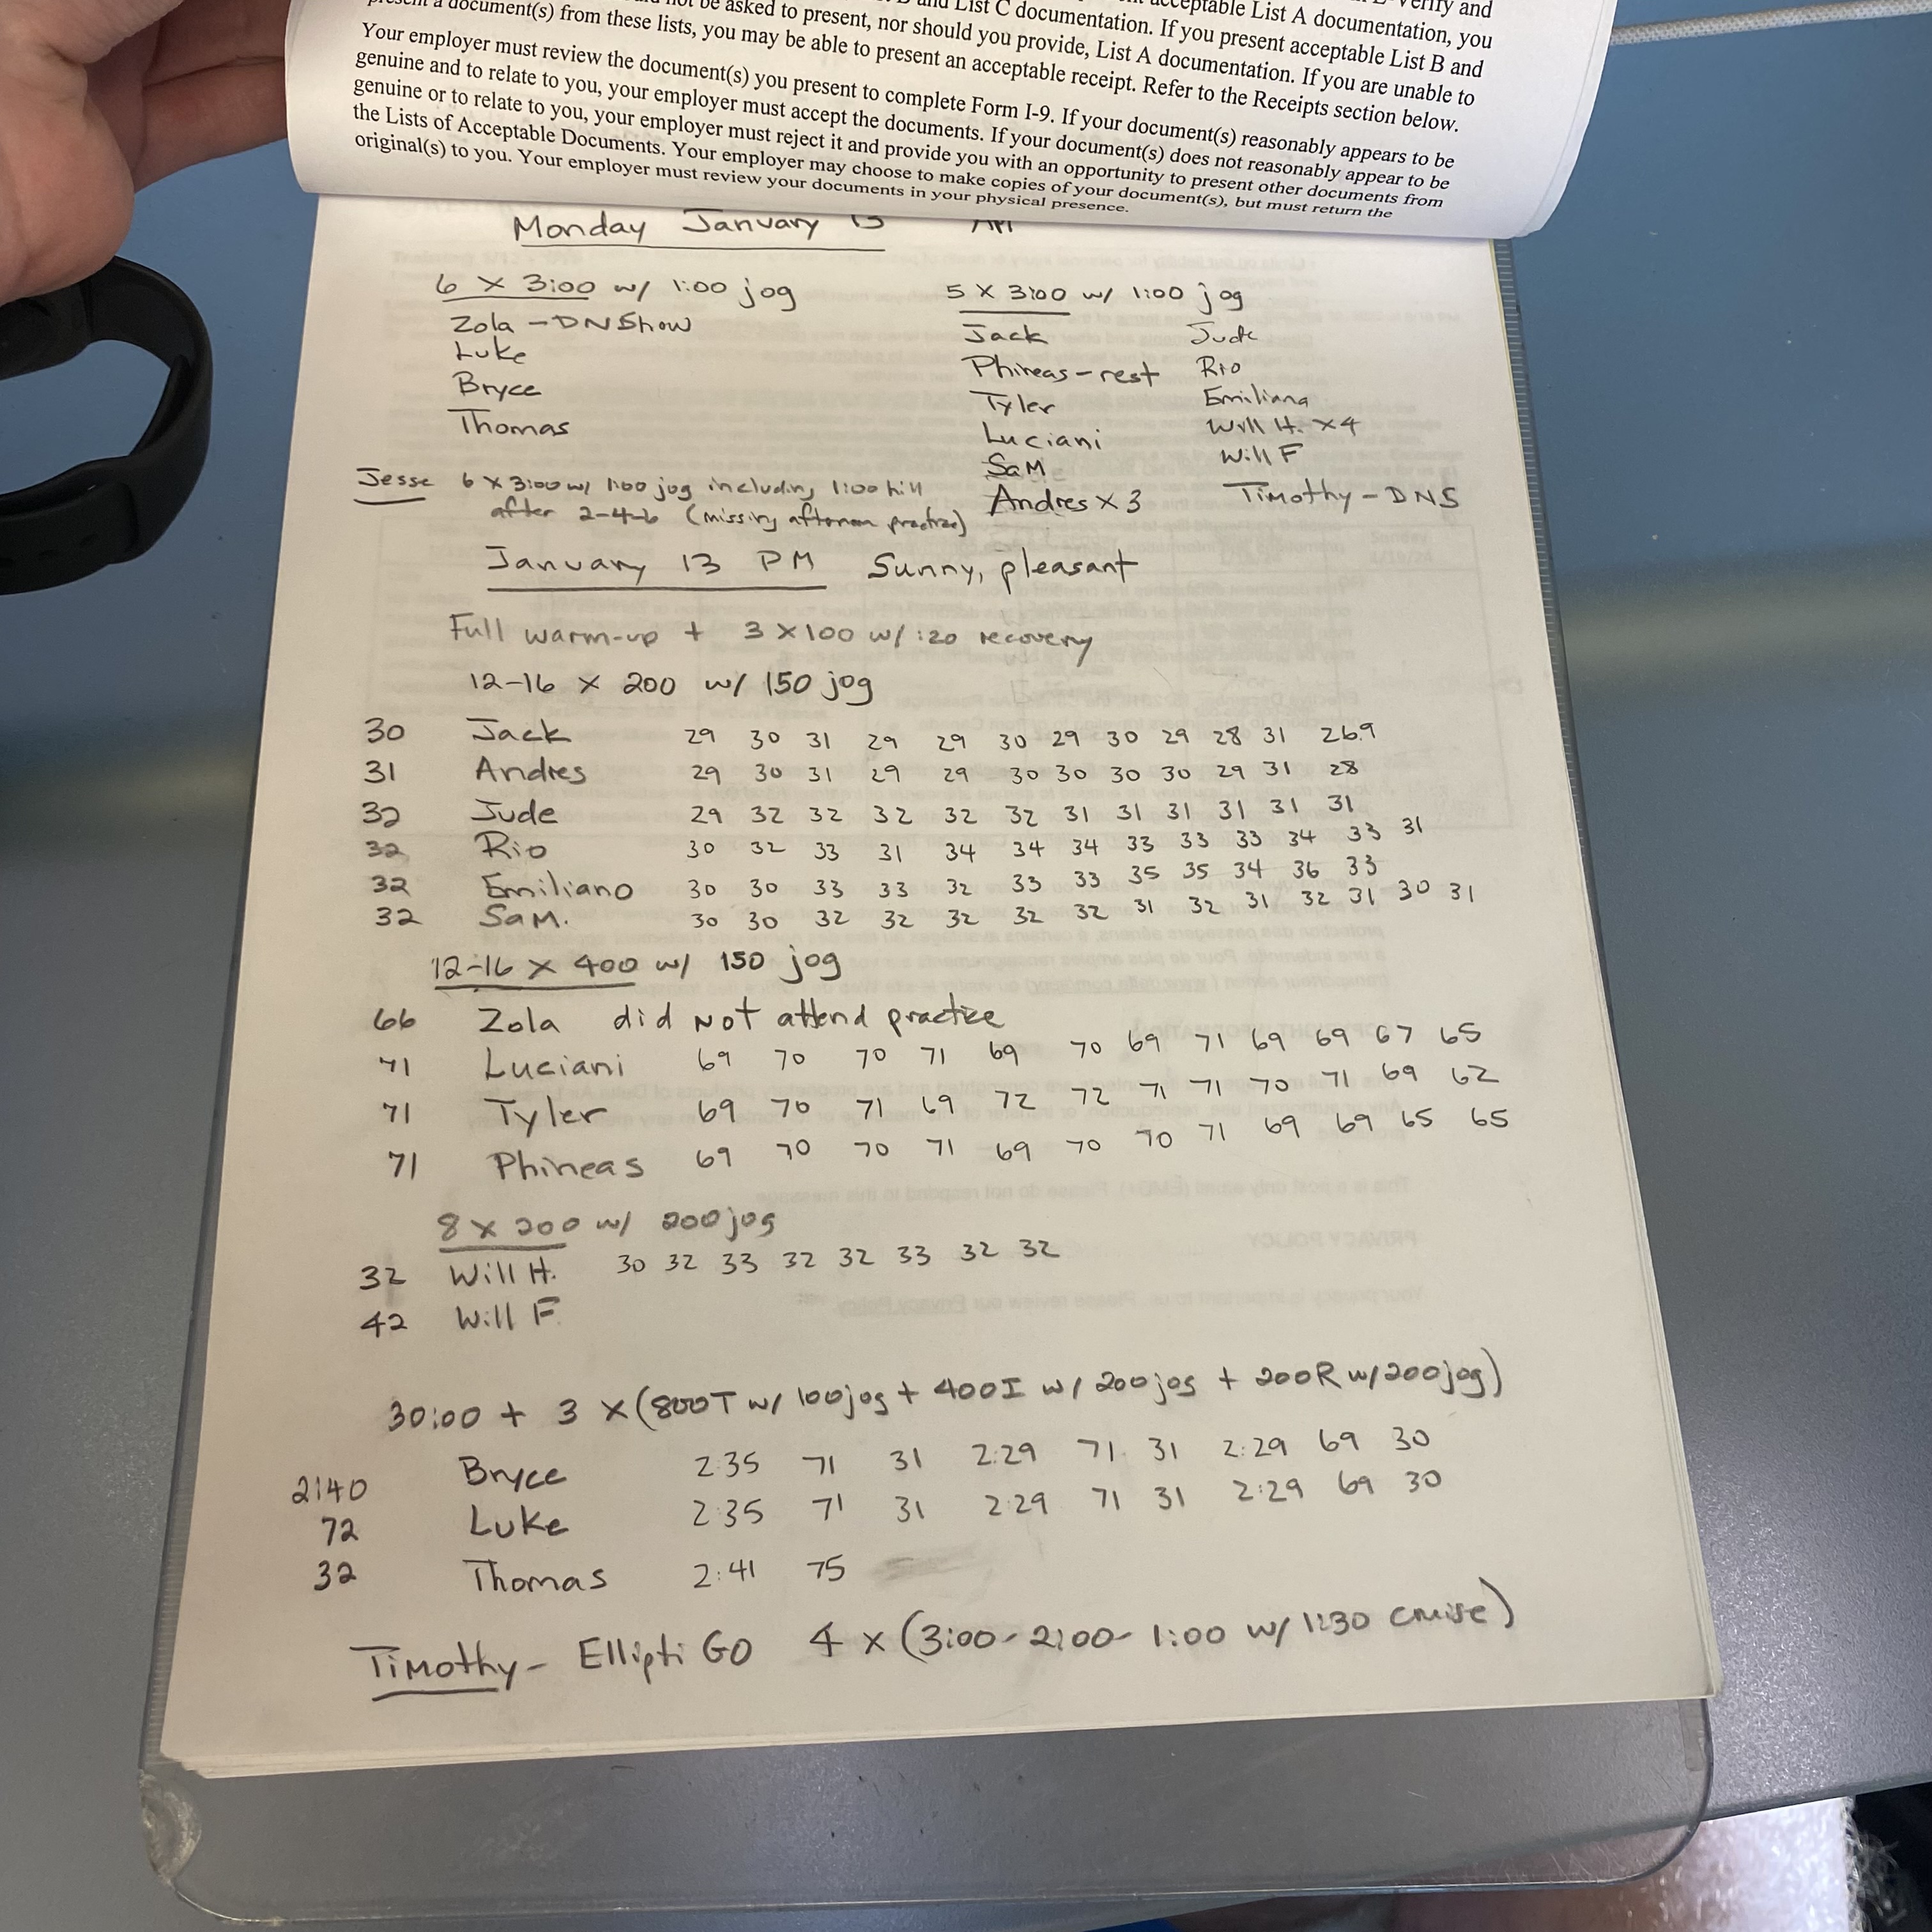 acceptable List A documentation, you
and List C documentation. If you present acceptable List B and
be asked to present, nor should you provide, List A documentation. If you are unable to
present a document(s) from these lists, you may be able to present an acceptable receipt. Refer to the Receipts section below.
Your employer must review the document(s) you present to complete Form I-9. If your document(s) reasonably appears to be
genuine and to relate to you, your employer must accept the documents. If your document(s) does not reasonably appear to be
genuine or to relate to you, your employer must reject it and provide you with an opportunity to present other documents from
the Lists of Acceptable Documents. Your employer may choose to make copies of your document(s), but must return the
original(s) to you. Your employer must review your documents in your physical presence.
Monday January 13 AM
6 x 3:00 w/ 1:00 jog
Zola - DNShow
Luke
Bryce
Thomas
5 x 3:00 w/ 1:00 jog
Jack Jude
Phineas - rest Rio
Tyler Emiliana
Luciani Will H. x4
SaM Will F
Andres x 3 Timothy - DNS
Jesse 6 x 3:00 w/ 1:00 jog including 1:00 hill
after 2-4-6 (missing afternoon practice)
January 13 PM Sunny, pleasant
Full warm-up + 3 x 100 w/ :20 recovery
12-16 x 200 w/ 150 jog
30 Jack 29 30 31 29 29 30 29 30 29 28 31 26.9
31 Andres 29 30 31 29 29 30 30 30 30 29 31 28
32 Jude 29 32 32 32 32 32 31 31 31 31 31 31
32 Rio 30 32 33 31 34 34 34 33 33 33 34 33 31
32 Emiliano 30 30 33 33 32 33 33 35 35 34 36 33
32 SaM. 30 30 32 32 32 32 32 31 32 31 32 31 30 31
12-16 x 400 w/ 150 jog
66 Zola did Not attend practice
71 Luciani 69 70 70 71 69 70 69 71 69 69 67 65
71 Tyler 69 70 71 69 72 72 71 71 70 71 69 62
71 Phineas 69 70 70 71 69 70 70 71 69 69 65 65
8 x 200 w/ 200 jog
32 Will H. 30 32 33 32 32 33 32 32
42 Will F.
30:00 + 3 x (800T w/ 100 jog + 400I w/ 200 jog + 200R w/ 200 jog)
2:40 Bryce 2:35 71 31 2:29 71 31 2:29 69 30
72 Luke 2:35 71 31 2:29 71 31 2:29 69 30
32 Thomas 2:41 75
Timothy - Ellipti GO 4 x (3:00 - 2:00 - 1:00 w/ 1:30 cruise)